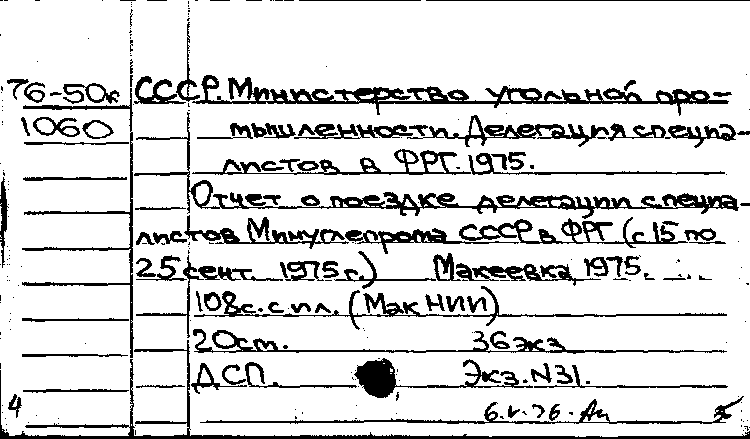 76-50к СССР. Министерство угольной про-
1060 мышленности. Делегация специа-
листов в ФРГ. 1975.
Отчет о поездке делегации специа-
листов Минуглепрома СССР в ФРГ (с 15 по
25 сент. 1975 г.) Макеевка, 1975.
108 с. с ил. (МакНИИ)
20 см. 36 экз
ДСП. Экз. N31.
4 6.V.76.